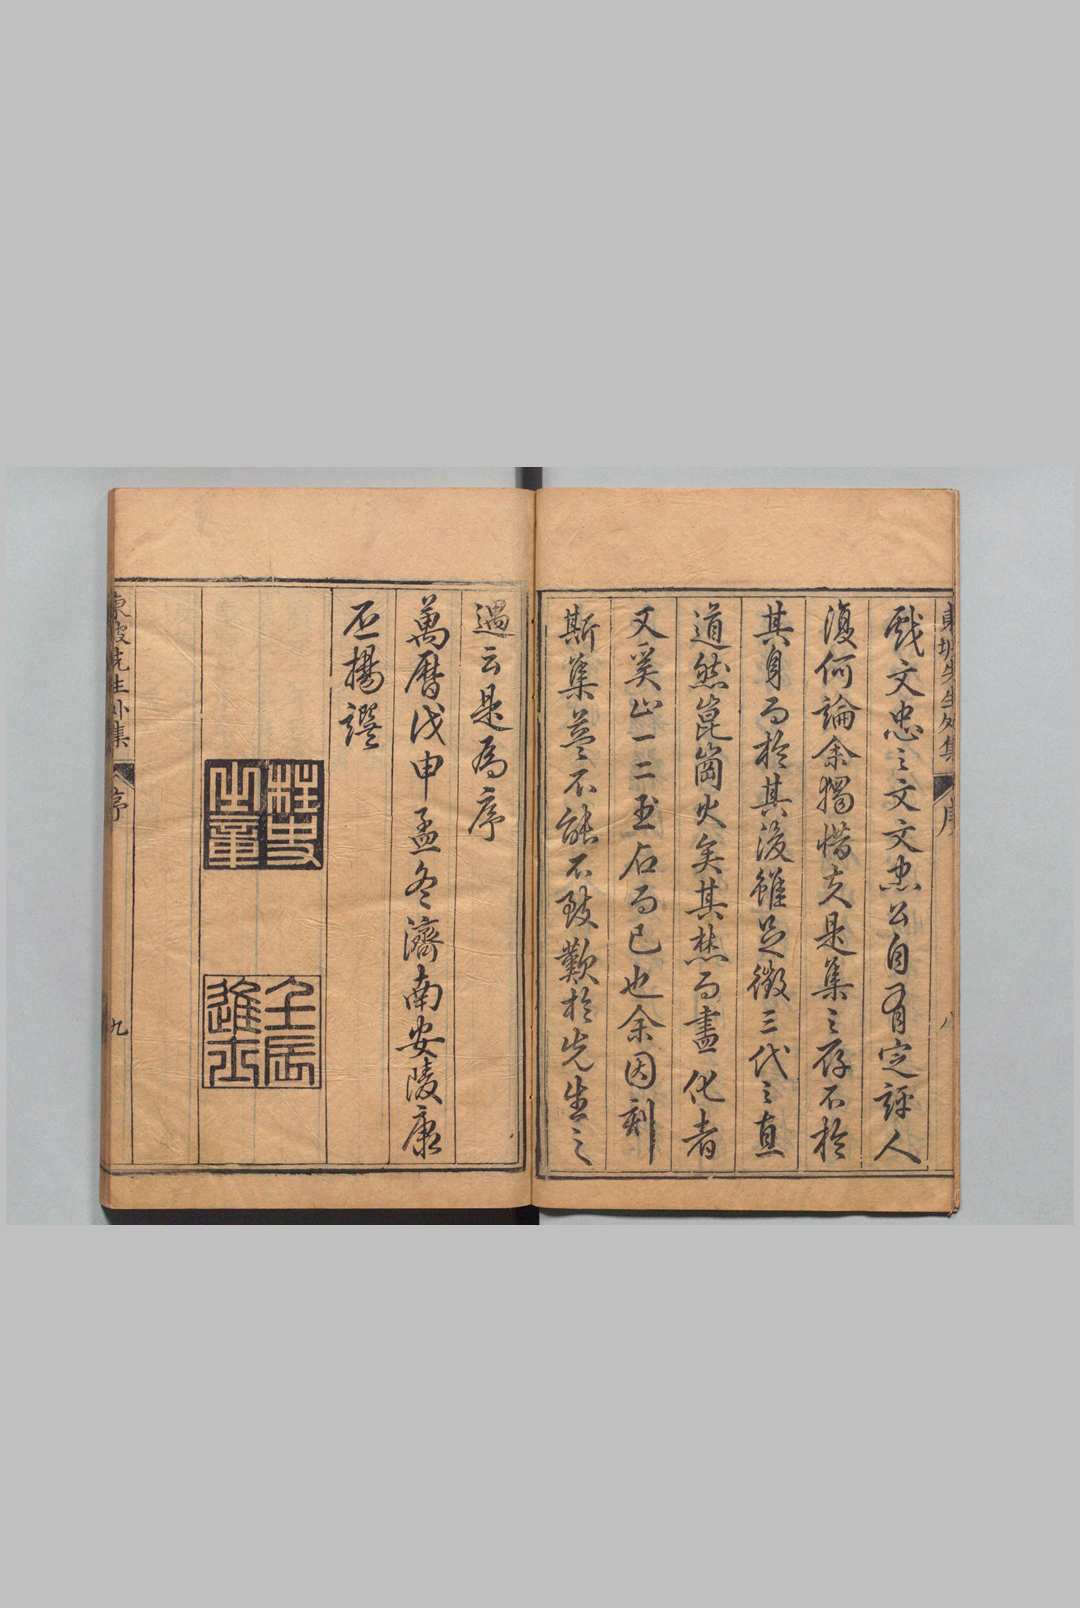 東坡先生外集
序
八
戲文忠之文文忠公自有定評人
復何論余獨惜夫是集之存不於
其身而於其後雖足徵三代之直
道然崑崗火矣其焚而盡化者
又奚止一二玉石而已也余因刻
斯集葢不能不致歎於先生之
遇云是為序
萬曆戊申孟冬濟南安陵康
丕揚譔
柱史之章
壬辰進士
東坡先生外集
序
九